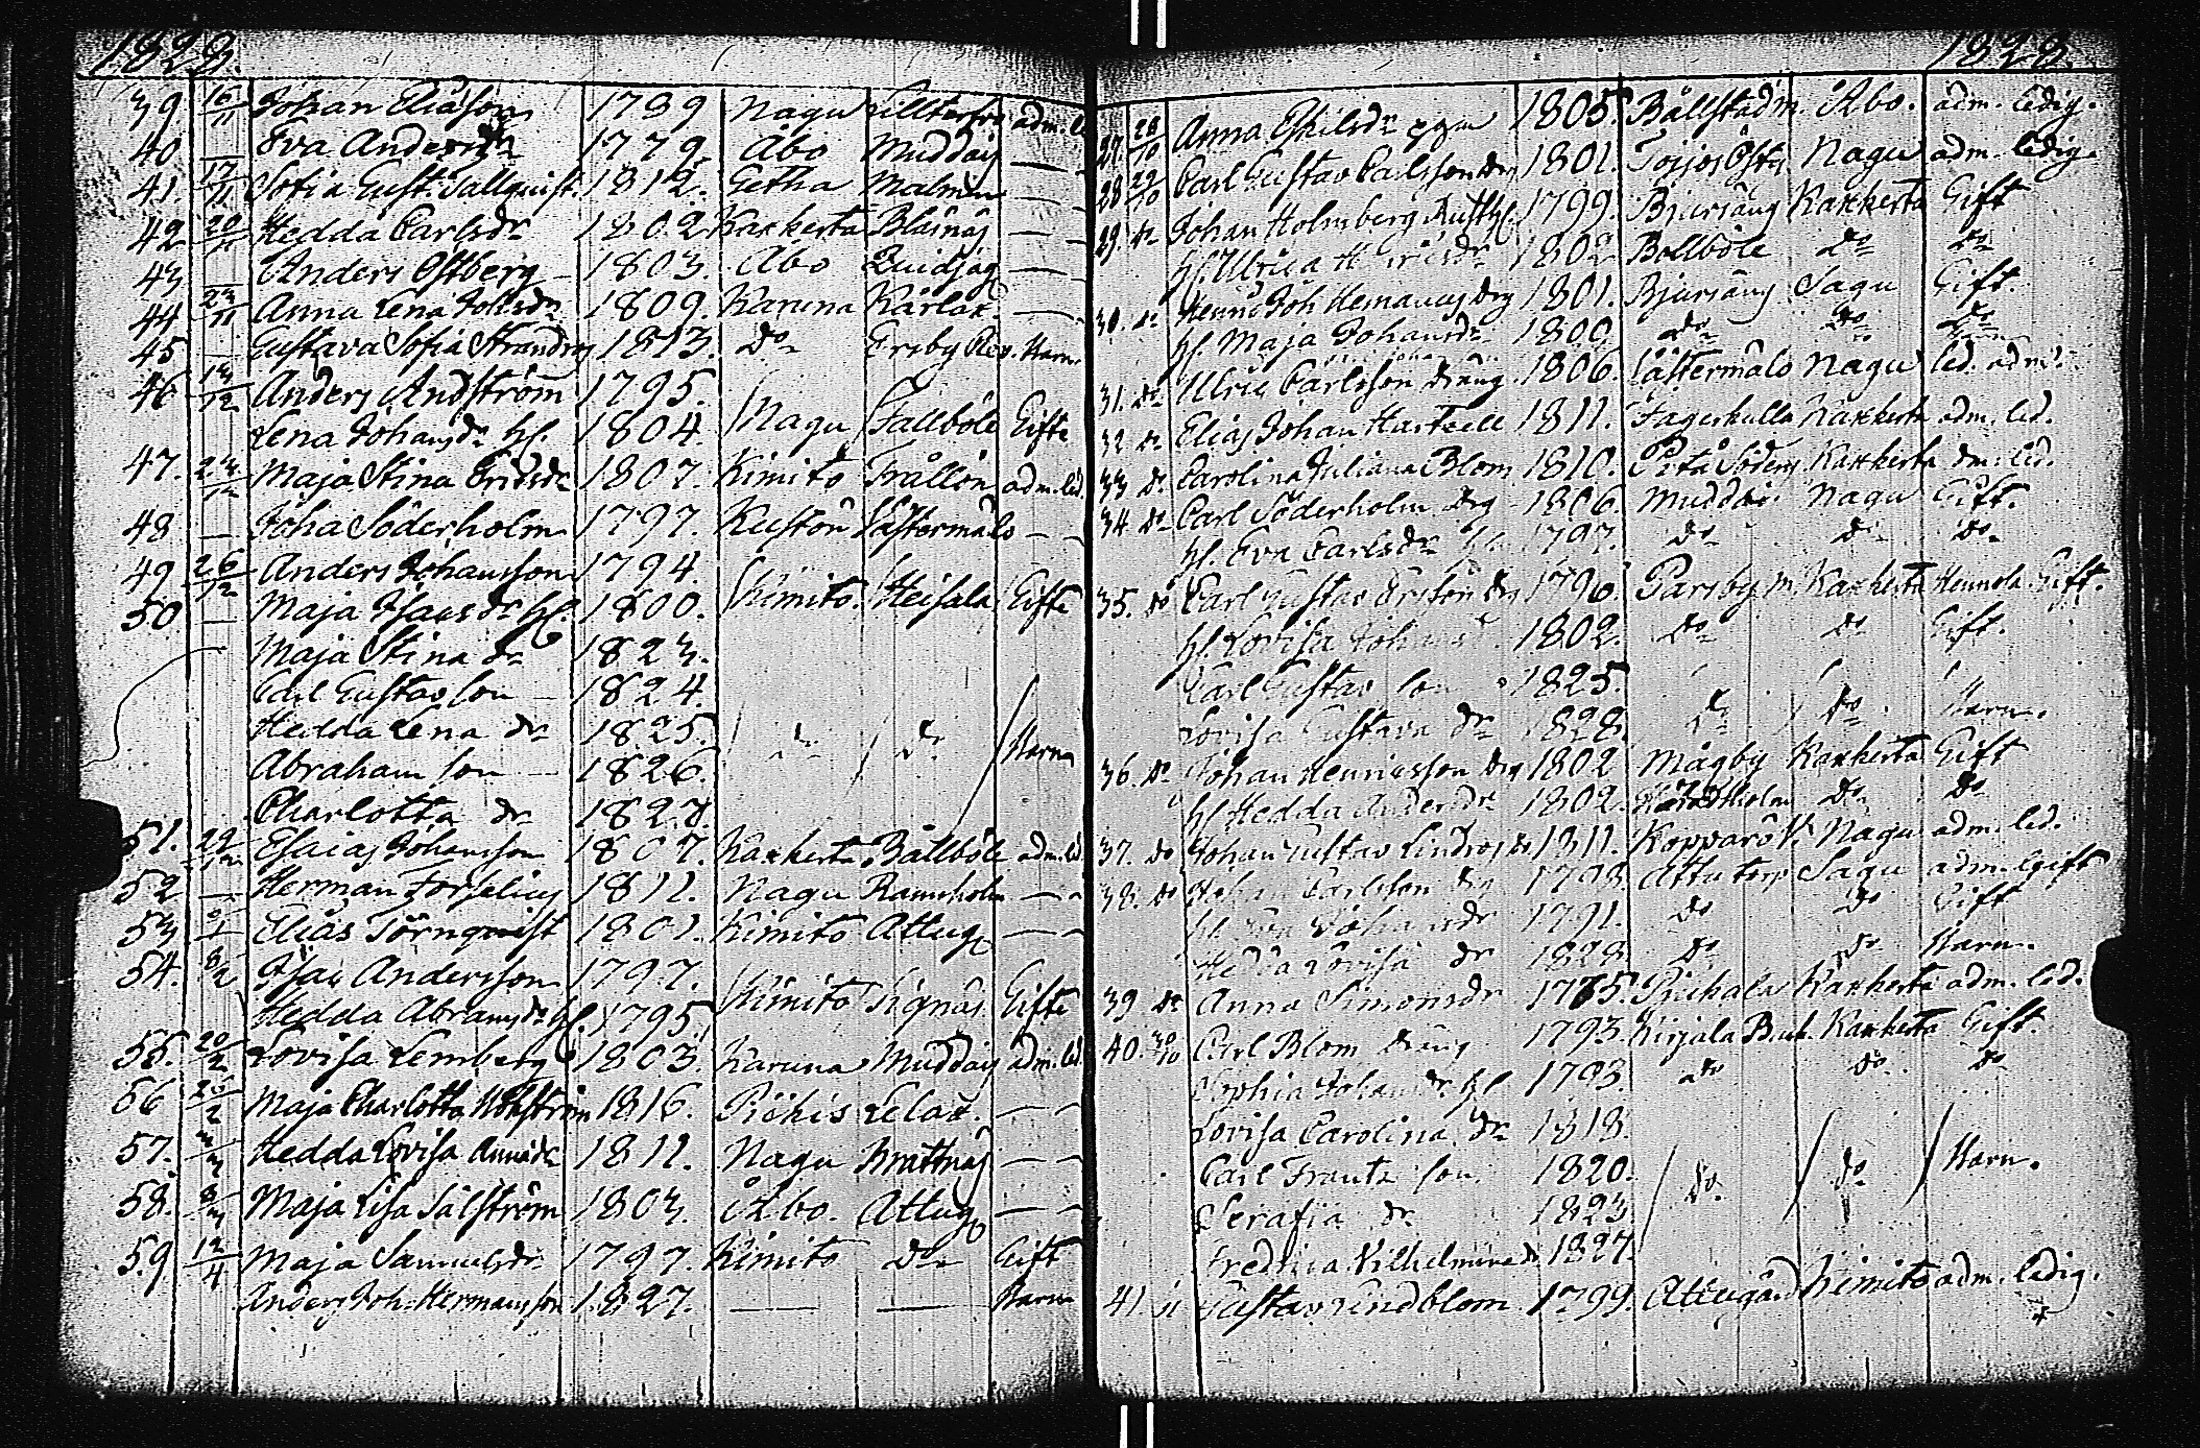 1828.
39 16/11 Johan Eliasson 1789 Nagu adm. l
40 — Eva Andersdr 1779. Åbo Muddais —
41. 17/11 Sofia Gust. Sallquist. 1812. Getha Malmen —
42 20/11 Hedda Carlsdr 1802 Kaxkerta Bläsnäs —
43 — Anders Östberg — 1803. Åbo Qvidja —
44 23/11 Anna Lena Johsdr 1809. Karuna Kärlax. —
45 — Gustava Sofia Strandros 1813. Do Ersby Barn.
46 13/12 Anders Andström 1795.
Lena Johansdr h. 1804 Nagu Fallböle Gifte
47. 23/12 Maja Stina Eriksdr 1807. Kimito Frällön adm. led
48 — Joha Söderholm 1797. Kustön Västermålö —
49 26/12 Anders Johansson 1794.
50 — Maja Isaksdr h. 1800. Kimito. Heisala Gifte
Maja Stina dr 1823.
Carl Gustav son — 1824.
Hedda Lena dr 1825. do do Barn
Abraham son — 1826.
Charlotta dr 1828.
51. 29/12 Esaias Johansson 1807. Kaxkerta Bållböle adm. led.
52 — Herman Forselius 1811. Nagu Ramsholm —
53 Elias Törnqvist 1801. Kimito Attug —
54. 8/2 Isac Andersson 1797.
Hedda Abramsdr h. 1795. Kimito Signäs Gifte
55. 20/2 Lovisa Lemberg 1803. Karuna Muddais adm. led.
56 26/2 Maja Charlotta 1816. Pickis Lelax. —
57. 3/3 Hedda Lovisa 1811. Nagu Krattnäs —
58. 8/3 Maja Lisa Sälström 1803. Åbo. Attug —
59. 12/4 Maja Samuelsdr 1797. Kimito Do Gift
Anders Joh. Hermansson 1827. — — Barn
1828.
27. 28/10 Anna Eskilsdr pga 1805. Bållstadm. Åbo. adm. ledig.
28 29/10 Carl Gustav Carlsson drg 1801. Nagu adm. ledig.
29. do Johan Holmberg 1799. Bjursäng Kaxkerta Gift
h. Ulrica dr 1802 Bollböle Do Do
30. do Joh Hemanus drg 1801. Bjursäng Sagu Gift.
h. Maja Johansdr 1800. Do Do Do
31. do Ulric Carlsson dräng 1806. Västermålö Nagu led. adm.
32 do Elias Johan Hartzell 1811. Fagerkulla Kaxkerta adm. led.
33 do Carolina Juliana Blom 1810. Kaxkerta led.
34. do Carl Söderholm drg 1806. Muddais Nagu Gift.
h. Eva Carlsdr 1797. do do do
35. do Carl Gustav drg 1796. Parsby m. Kaxkerta Gift.
h. Lovisa 1802. do do Gift.
Carl Gustav son 1825.
Lovisa Gustava dr 1828. do do Barn.
36. do Johan Henricsson drg 1802 Mågby Kaxkerta Gift
h. Hedda Andersdr 1802. do do
37. do Johan Gustav Lindros 1811. Kopparö Nagu adm. led.
38. do Johan Carlsson drg 1798 Attu torp Sagu adm. Gift
h. Eva Johansdr 1791. do do Gift
Hedda Lovisa dr 1828 do do Barn.
39 do Anna Simonsdr 1785. Kaxkerta adm. led.
40. 30/10 Carl Blom dräng 1793. Kirjala Kaxkerta Gift.
Sophia Johansdr h. 1793. do do do
Lovisa Carolina dr 1818.
Carl Frantz son. 1820. do. do. Barn.
Serafia dr 1823
Fredrica Vilhelmina dr 1827.
41. Gustav Lindblom 1799. Attugård Kimito adm. ledig.